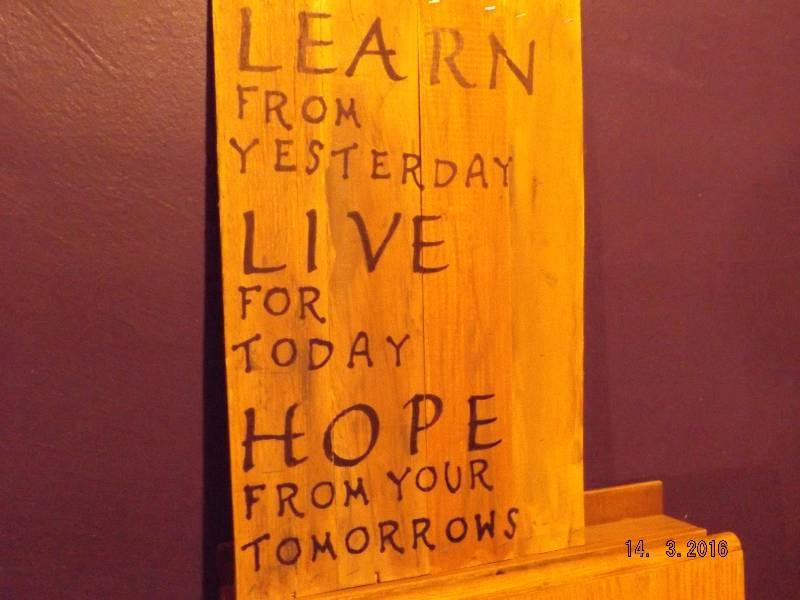 LEARN
FROM
YESTERDAY
LIVE
FOR
TODAY
HOPE
FROM YOUR
TOMORROWS
14. 3.2016